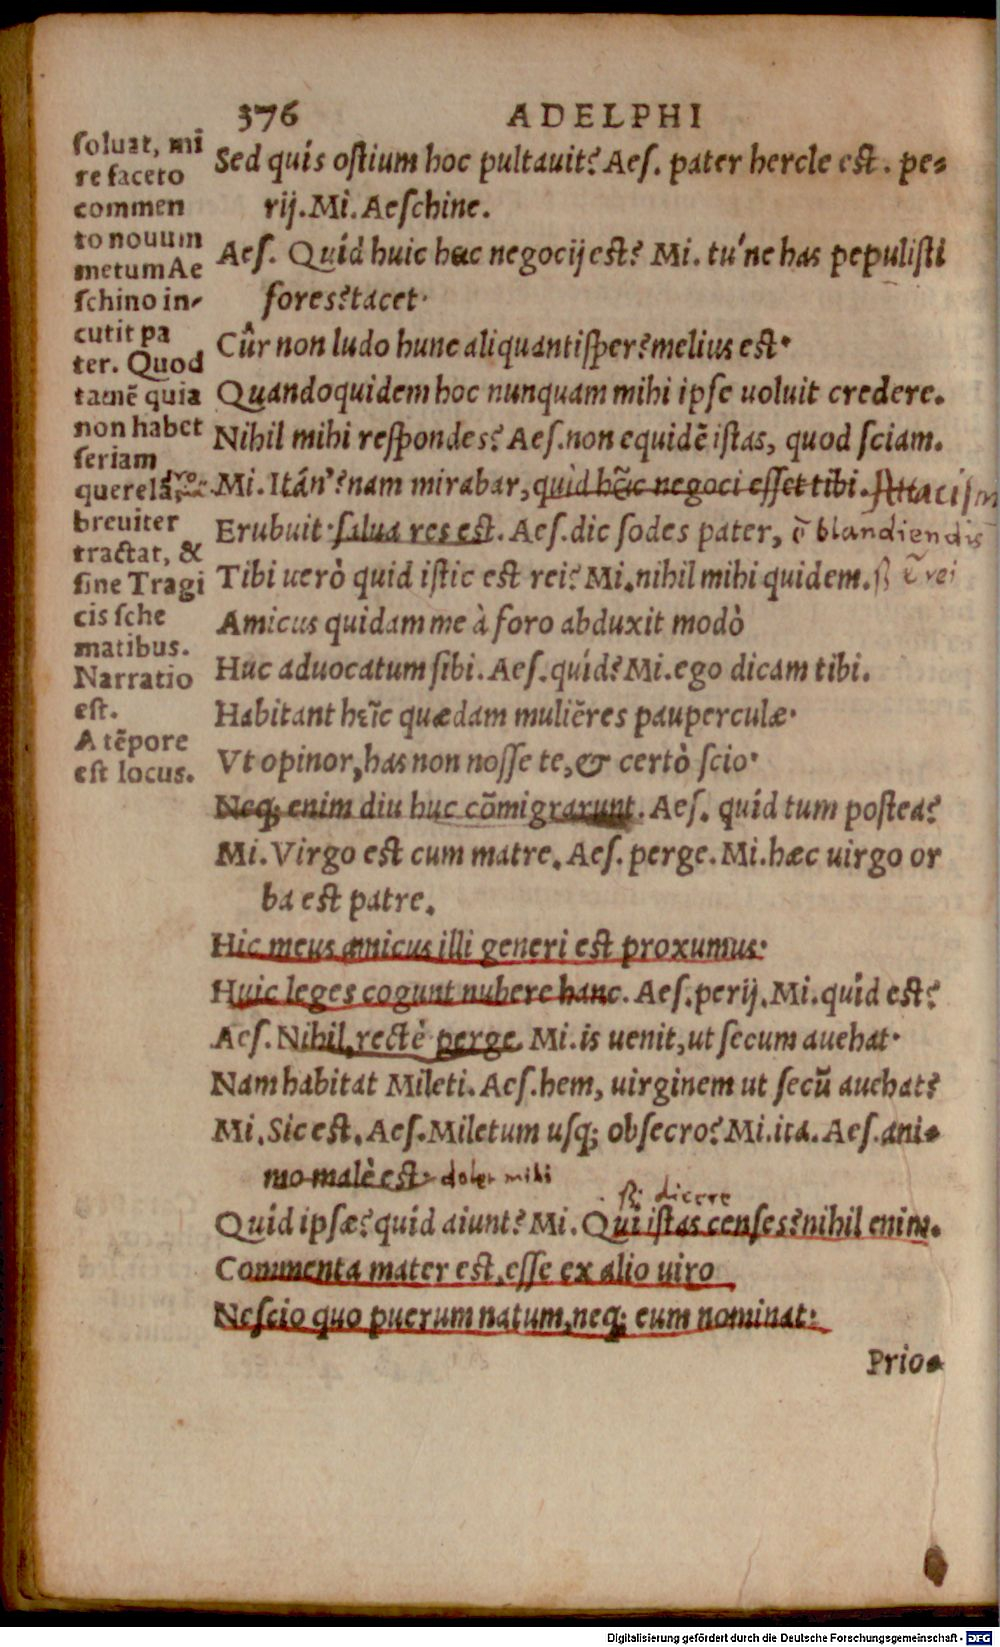 376 ADELPHI
soluat, mi
re faceto
commen
to nouum
metum Ae
schino in-
cutit pa
ter. Quod
tamē quia
non habet
seriam
querelā,
breuiter
tractat, &
sine Tragi
cis sche
matibus.
Narratio
est.
A tēpore
est locus.
Sed quis ostium hoc pultauit? Aes. pater hercle est. pe-
rij. Mi. Aeschine.
Aes. Quid huic hac negocij est? Mi. tu'ne has pepulisti
fores? tacet.
Cûr non ludo hunc aliquantisper? melius est.
Quandoquidem hoc nunquam mihi ipse uoluit credere.
Nihil mihi respondes? Aes. non equidē istas, quod sciam.
Mi. Itán'? nam mirabar, quid hîc negoci esset tibi.
Erubuit. salua res est. Aes. dic sodes pater, ē blandiendis
Tibi uerò quid istic est rei? Mi. nihil mihi quidem. ē rei
Amicus quidam me à foro abduxit modò
Huc aduocatum sibi. Aes. quid? Mi. ego dicam tibi.
Habitant hîc quædam muliēres pauperculæ.
Vt opinor, has non nosse te, & certò scio.
Neq; enim diu huc cōmigrarunt. Aes. quid tum postea?
Mi. Virgo est cum matre. Aes. perge. Mi. hæc uirgo or
ba est patre.
Hic meus amicus illi generi est proxumus.
Huic leges cogunt nubere hanc. Aes. perij. Mi. quid est?
Aes. Nihil, rectè perge. Mi. is uenit, ut secum auehat.
Nam habitat Mileti. Aes. hem, uirginem ut secū auehat?
Mi. Sic est. Aes. Miletum usq; obsecro? Mi. ita. Aes. ani-
mo malè est. dolet mihi
dicere
Quid ipsæ? quid aiunt? Mi. Qui istas censes? nihil enim.
Commenta mater est, esse ex alio uiro
Nescio quo puerum natum, neq; eum nominat:
Prio-
Digitalisierung gefördert durch die Deutsche Forschungsgemeinschaft - DFG